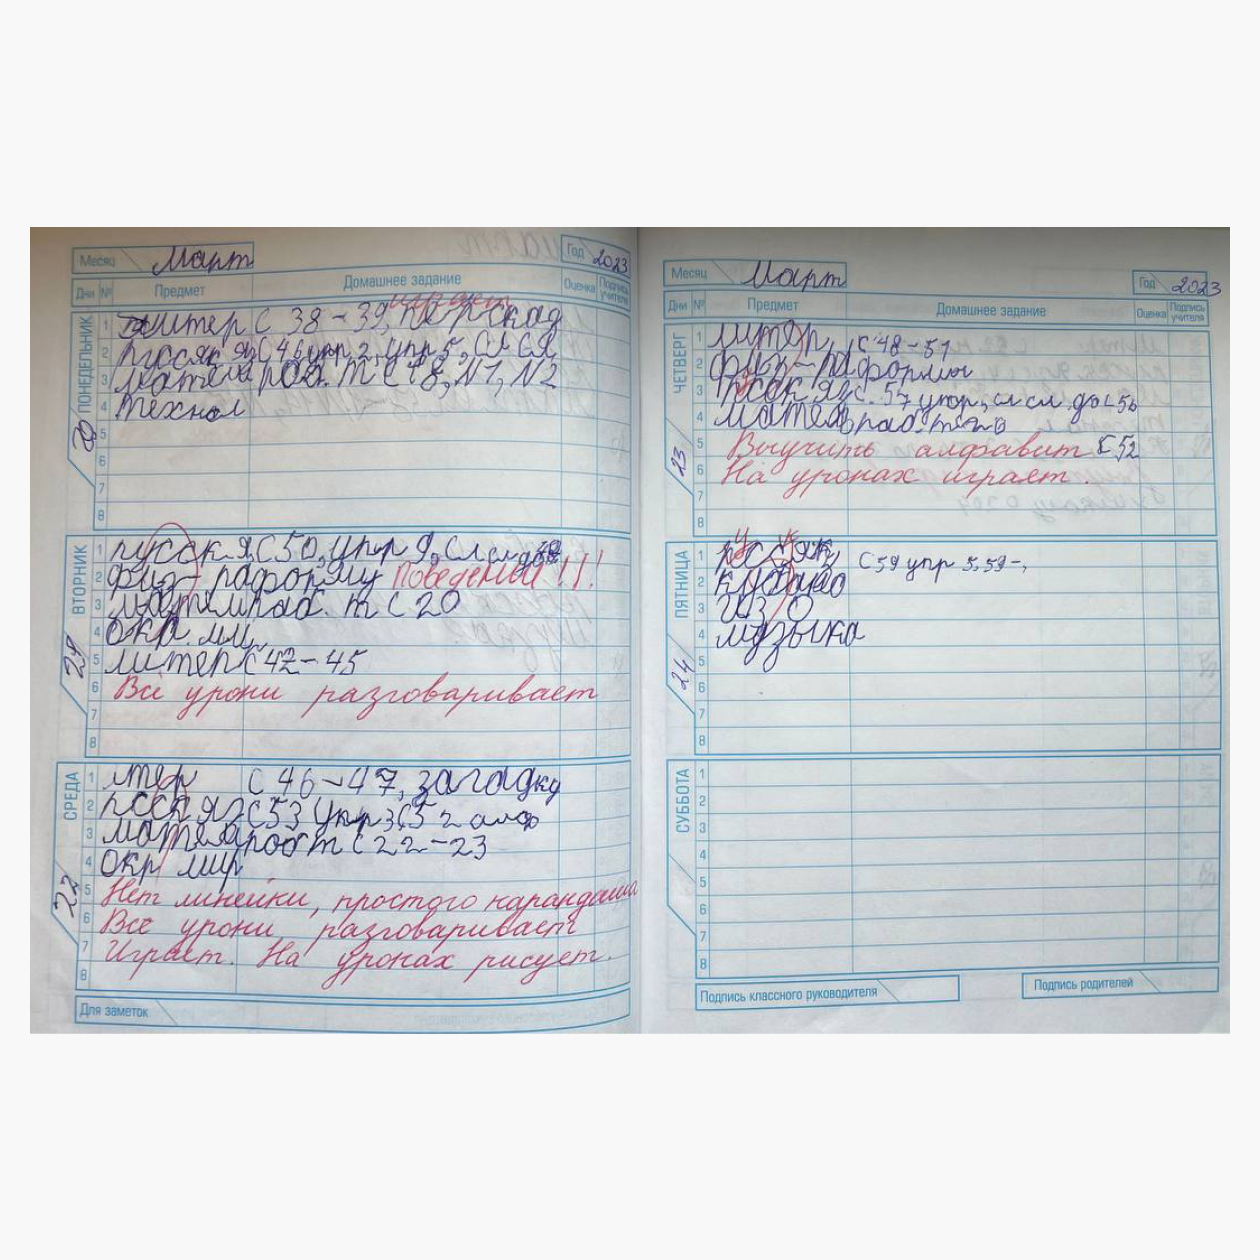 Месяц Март Год 2023
Дни № Предмет Домашнее задание Оценка Подпись учителя
играет
ПОНЕДЕЛЬНИК 20
1 литер с 38-39,
2 русск яз с 46 упр 2, упр 5,
3 матем раб. т с 18, N1, N2
4 технол
5
6
7
8
ВТОРНИК 21
1 русск я, с 50, упр 9, сл сл до
2 физ- раформу Поведение!!!
3 матем раб. т с 20
4 окр. ми
5 литер с 42-45
6 Все уроки разговаривает
7
8
СРЕДА 22
1 лтер с 46-47, загадку
2 русск яз с 53 упр 3, 52 алф
3 матем работ с 22-23
4 окр мир
5 Нет линейки, простого карандаша
6 Все уроки разговаривает
7 Играет. На уроках рисует.
8
Для заметок
Месяц Март Год 2023
Дни № Предмет Домашнее задание Оценка Подпись учителя
ЧЕТВЕРГ 23
1 литер, с 48-51
2 физ-раформы
3 русск яз с. 57 упр, сл сл до с 56
4 матем раб. т с 20
5 Выучить алфавит с 52
6 На уроках играет.
7
8
ПЯТНИЦА 24
1 русск яз с 59 упр 5, 59-,
2 кубано
3 ИЗО
4 музыка
5
6
7
8
СУББОТА
1
2
3
4
5
6
7
8
Подпись классного руководителя Подпись родителей